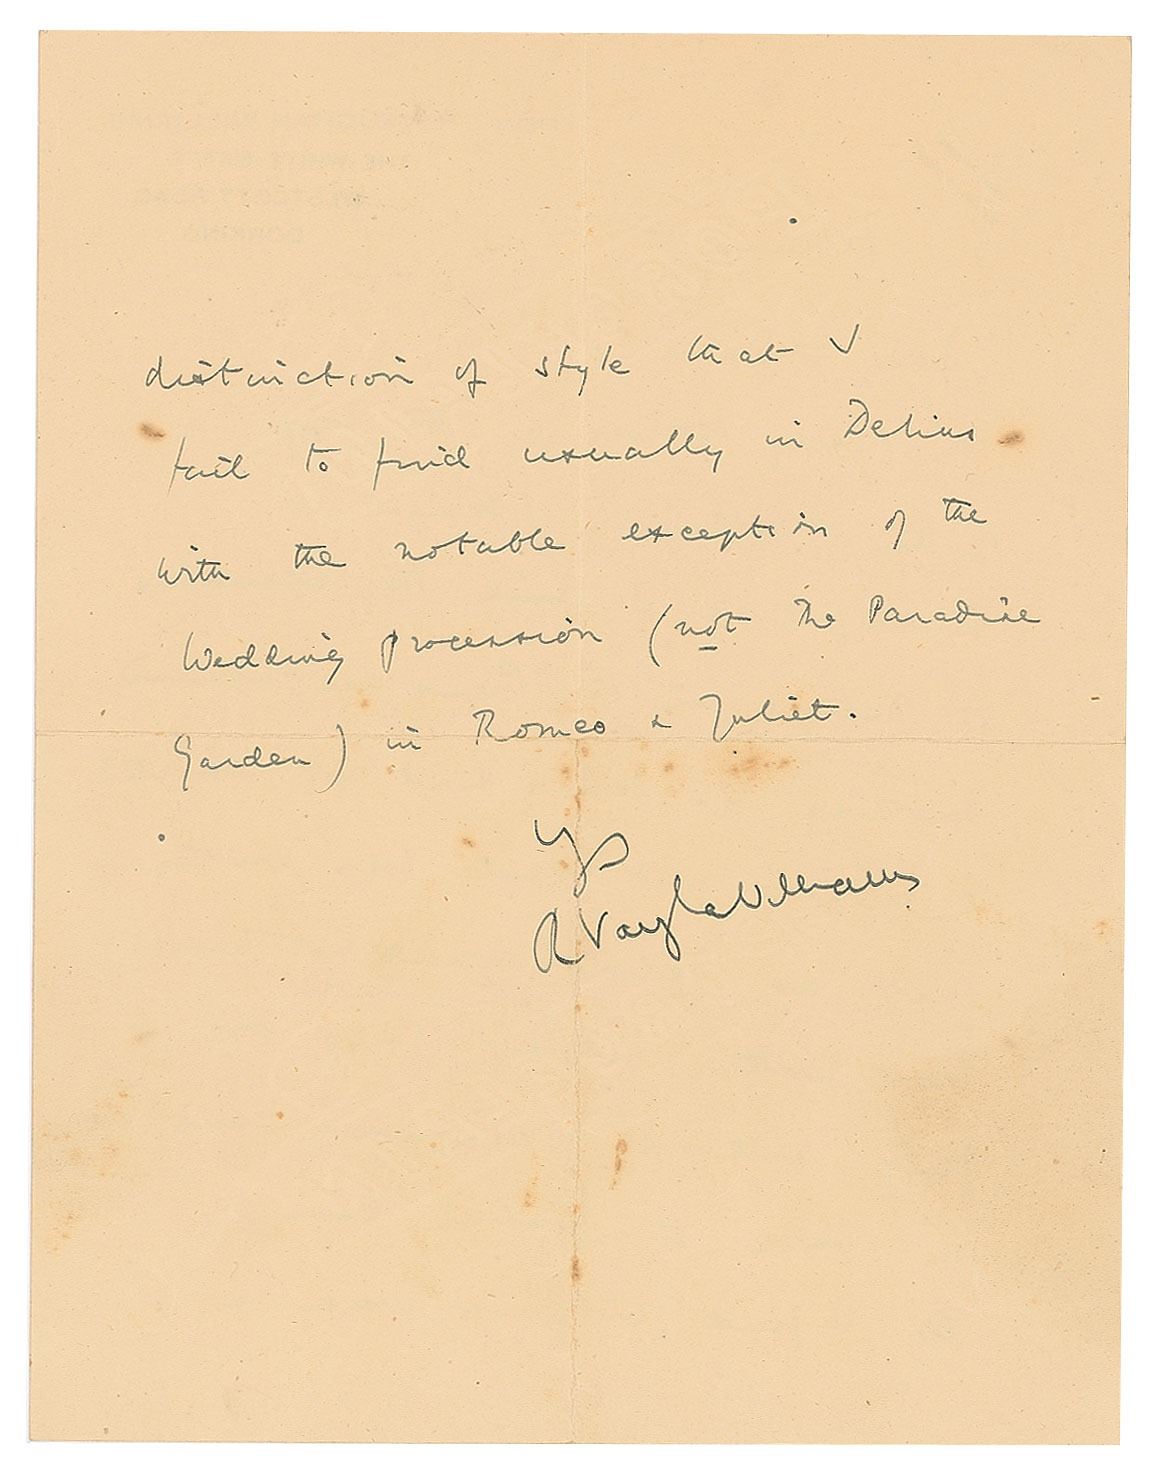 distinction of style that I
fail to find usually in Delius
with the notable exception of the
Wedding procession (not the Paradise
Garden) in Romeo & Juliet.
Yrs
R Vaughan Williams